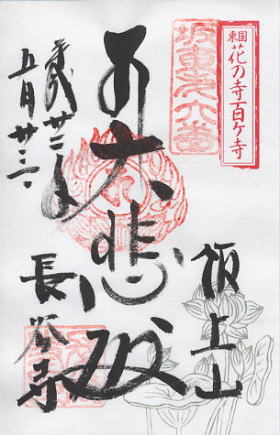 東国
花の寺百ヶ寺
坂東第六番
飯上山
大悲殿
長谷寺
平成廿二年
五月廿三日